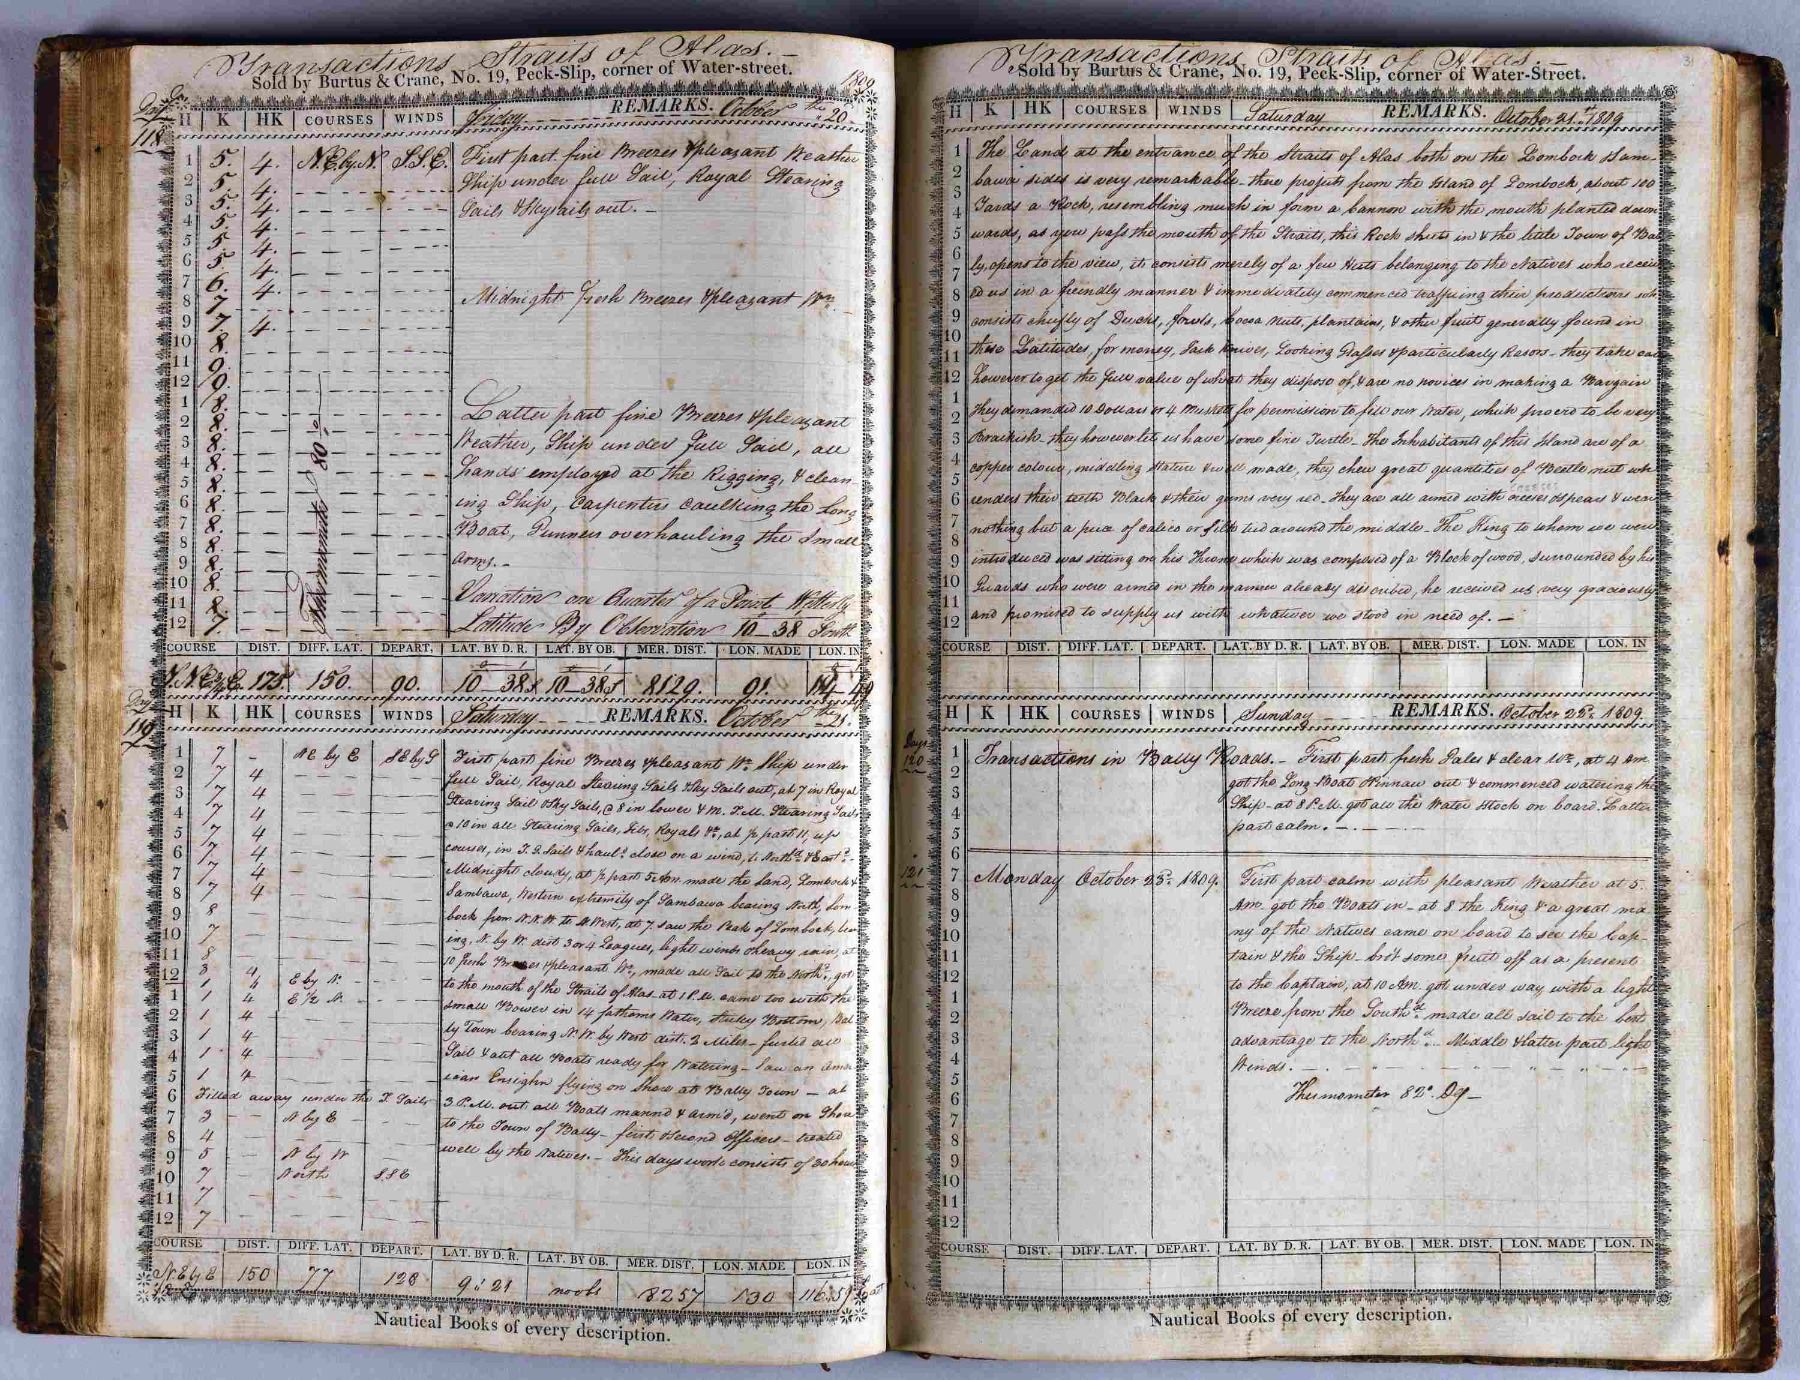 Transactions Straits of Alas. —
Sold by Burtus & Crane, No. 19, Peck-Slip, corner of Water-street.
1809
H K HK COURSES WINDS Friday REMARKS. October 20th
118
1 5. 4. N.E.by.N. S.S.E. First part fine Breezes & pleasant Weather
2 5. 4. Ship under full Sail, Royal Stearing
3 5. 4. Sails & Skysails out. —
4 5. 4.
5 5. 4.
6 5. 4.
7 6. 4.
8 7 Midnight fresh Breezes & pleasant Wr.
9 7. 4.
10 8.
11 9.
12 9.
1 8. Latter part fine Breezes & pleasant
2 8. Weather, Ship under full Sail, all
3 8. hands employed at the Rigging, & clean-
4 8. ing Ship, Carpenters Caulking the Long
5 8. Boat, Gunners overhauling the Small
6 8. Arms. —
7 8.
8 8.
9 8.
10 8.
11 8. Variation one Quarter of a Point Westerly
12 7. Latitude By Observation 10–38 South
Thermometer 80°
COURSE DIST. DIFF. LAT. DEPART. LAT. BY D. R. LAT. BY OB. MER. DIST. LON. MADE LON. IN
175. 150. 90. 10–38 S 10–38 S 8129. 91.
119
H K HK COURSES WINDS Saturday REMARKS. October 21
1 7 - N E by E S E by S First part fine Breezes & pleasant Wr. Ship under
2 7 4 full Sail, Royal Stearing Sails & Sky Sails out, at 7 in Royal
3 7 4 Stearing Sail & Sky Sails, @ 8 in lower & M. T.M. Stearing Sails
4 7 4 @ 10 in all Stearing Sails, Jibs, Royals &c, at ½ past 11, up
5 7 4 courses, in T. G. Sails & haul'd close on a wind, to North'd & East'd
6 7 4 Midnight cloudy, at ½ past 5 Am. made the land, Lombock &
7 7 4 Sambawa, Western extremity of Sambawa bearing North, Lom
8 7 4 bock from N.N.W to N. West, at 7. saw the Peak of Lombock, bea
9 8 ing. N. by W. dist 3 or 4 Leagues, light winds & heavy rain, at
10 7 10 fresh Breezes & pleasant Wr., made all Sail to the North'd, got
11 8 to the mouth of the Straits of Alas at 1 P.M. came too with the
12 3 4 small Bower in 14 fathoms Water, sticky Bottom, Bal
1 1 4 E by N. ly Town bearing N. W. by West dist. 2 Miles — furled all
1 4 E ½ N. Sail & got all Boats ready for Watering — Saw an Ame
2 1 4 rican Ensighn flying on Shore at Bally Town — at
3 1 4 3 P.M. out all Boats mannd & arm'd, went on Shore
4 1 4 to the Town of Bally — first & Second Officers — treated
5 1 4 well by the Natives. — This days work consists of 30 hours
6 Filled away under the T. Sails
7 3 - N by E
8 4
9 5 - N by W
10 7 North S S E
11 7
12 7
COURSE DIST. DIFF. LAT. DEPART. LAT. BY D. R. LAT. BY OB. MER. DIST. LON. MADE LON. IN
N. E by E 150 77 128 9° 21 no obs 8257 130
Nautical Books of every description.
31
Transactions Straits of Alas. —
Sold by Burtus & Crane, No. 19, Peck-Slip, corner of Water-Street.
H K HK COURSES WINDS Saturday REMARKS. October 21st 1809
1 The Land at the entrance of the Straits of Alas both on the Lombock & Sam-
2 bawa sides is very remarkable – there projects from the Island of Lombock, about 100
3 Yards a Rock, resembling much in form a Cannon with the mouth planted down
4 wards, as you pass the mouth of the Straits, this Rock shuts in & the little Town of Bal
5 ly, opens to the view, it consists merely of a few Huts belonging to the Natives who receiv
6 ed us in a friendly manner & immediately commenced traffiing their productions wh
7 consists chiefly of Ducks, fowls, Cocoa Nuts, plantains, & other fruit generally found in
8 these Latitudes, for money, Jack knives, Looking Glasses & particularly Rasors. they take care
9 however to get the full value of what they dispose of, & are no novices in making a Bargain
10 they demanded 10 Dollars or 4 Muskets for permission to fill our Water, which proved to be very
11 Brackish. they however let us have some fine Turtle. The Inhabitants of this Island are of a
12 copper colour, middling stature & well made, they chew great quantities of Beetle nut wh
1 renders their teeth Black & their gums very red. They are all armed with creeses & spears & wear
2 nothing but a piece of calico or Silk tied around the middle. The King to whom we were
3 introduced was sitting on his Throne which was composed of a Block of wood, surrounded by his
4 Guards who were armed in the manner already described, he received us very graciously
5 and promised to supply us with whatever we stood in need of. —
6
7
8
9
10
11
12
COURSE DIST. DIFF. LAT. DEPART. LAT. BY D. R. LAT. BY OB. MER. DIST. LON. MADE LON. IN
H K HK COURSES WINDS Sunday REMARKS. October 22d. 1809
Days
120
1 Transactions in Bally Roads. — First part fresh Gales & clear Wr, at 4 Am
2 got the Long-Boat & Pinnace out & commenced watering the
3 Ship – at 8 P.M. got all the Water Stock on board. Latter
4 part calm. — . — . —
5
6
121
7 Monday October 23d. 1809. First part calm with pleasant Weather at 5.
8 Am. got the Boats in – at 8 the King & a great ma
9 ny of the Natives came on board to see the Cap-
10 tain & the Ship – bro't some fruit off as a present
11 to the Captain, at 10 Am. got under way with a light
12 Breeze from the South'd made all Sail to the best
1 advantage to the North'd. Middle & latter part light
2 Winds. —
3 Thermometer 82° Dg —
4
5
6
7
8
9
10
11
12
COURSE DIST. DIFF. LAT. DEPART. LAT. BY D. R. LAT. BY OB. MER. DIST. LON. MADE LON. IN
Nautical Books of every description.